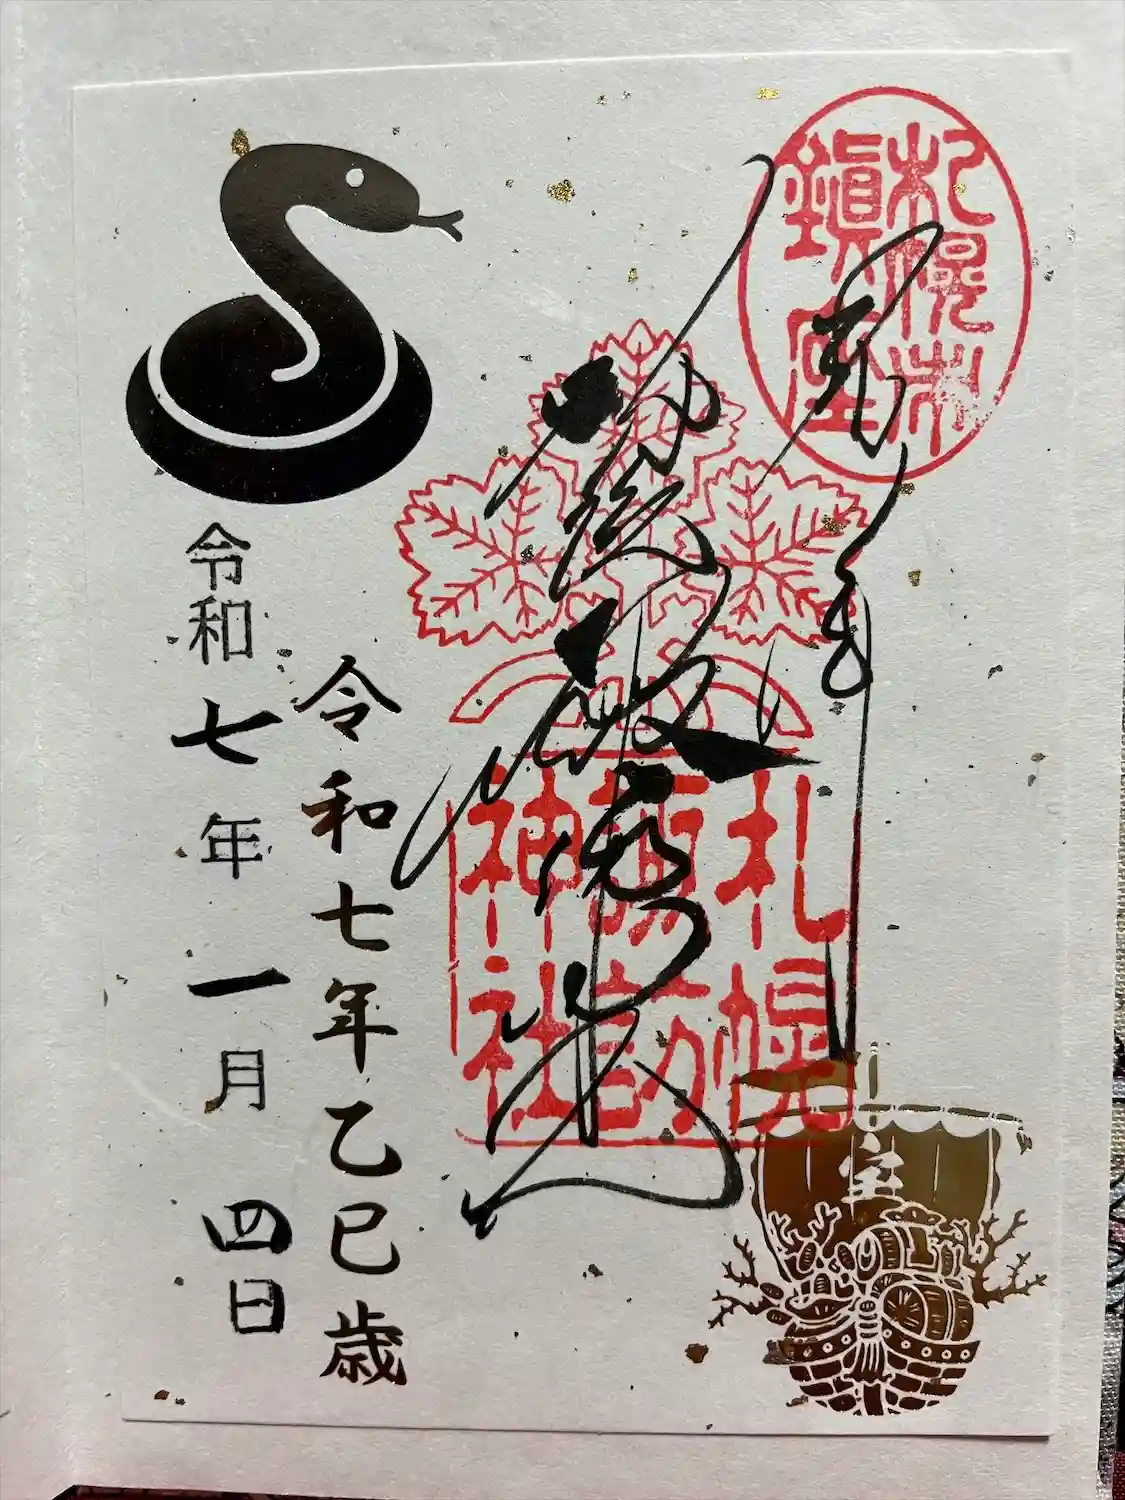 札幌市
鎮座
札幌
諏訪
神社
令和七年乙巳歳
令和七年一月四日
宝